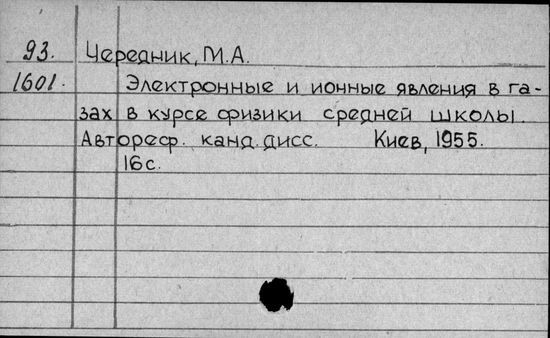 93. Чередник, М.А.
1601. Электронные и ионные явления в га-
зах в курсе физики средней школы.
Автореф. канд. дисс. Киев, 1955.
16с.